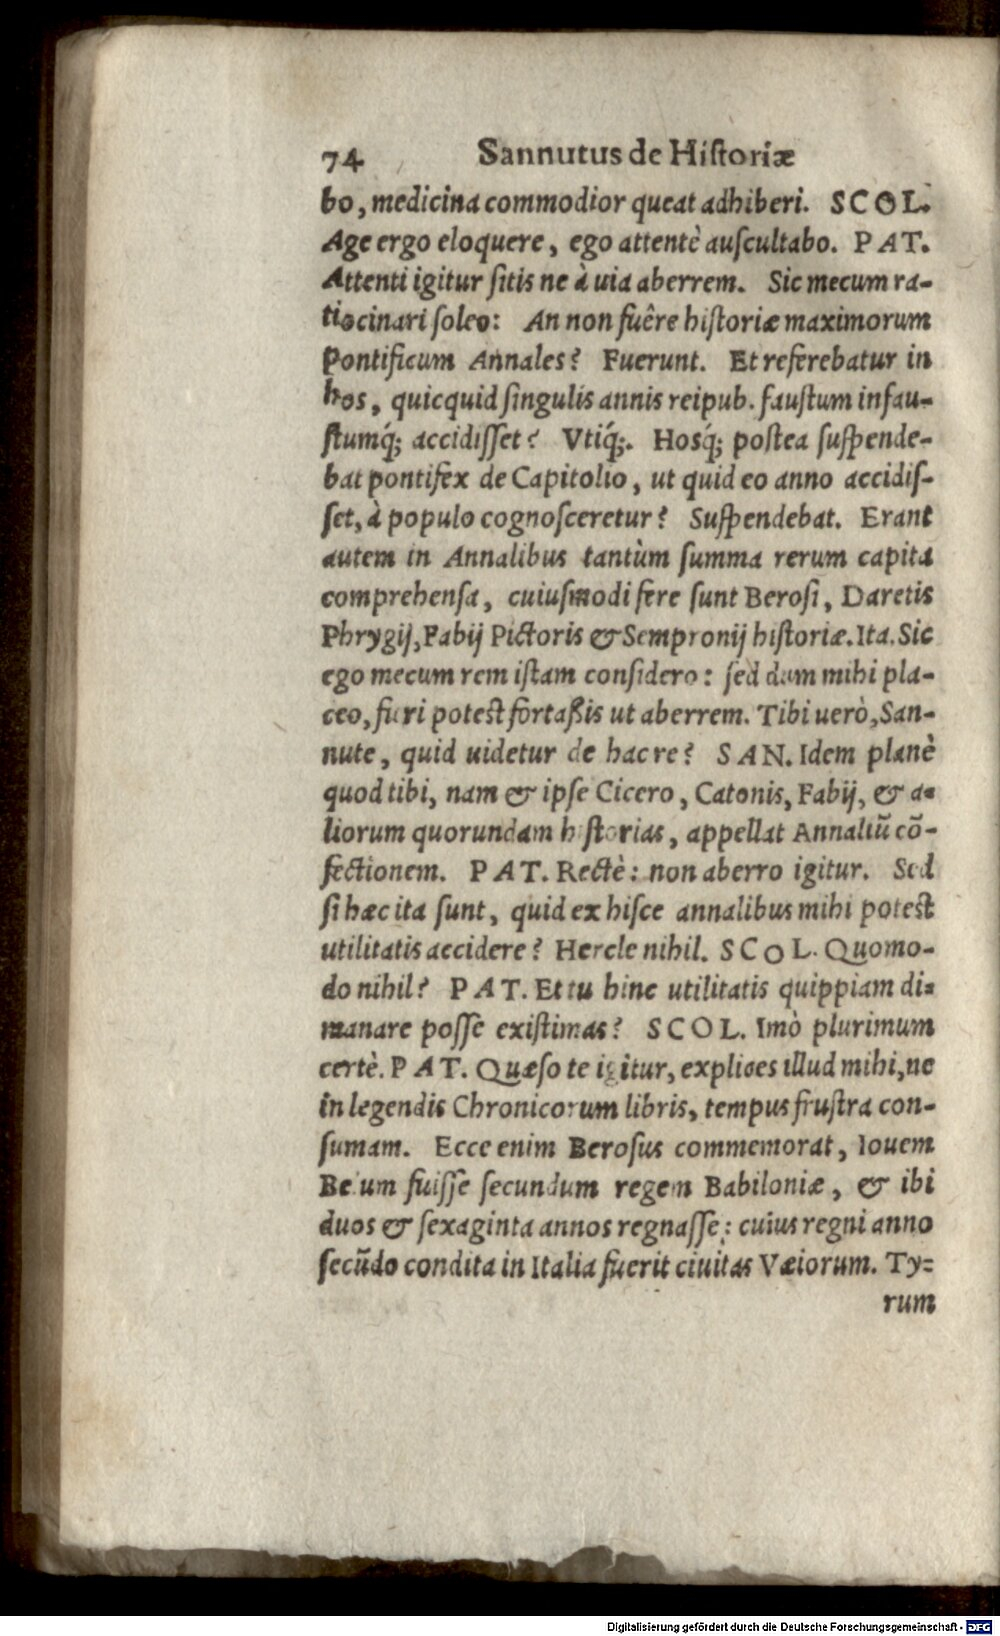 74 Sannutus de Historiæ
bo, medicina commodior queat adhiberi. SCOL.
Age ergo eloquere, ego attentè auscultabo. PAT.
Attenti igitur sitis ne à uia aberrem. Sic mecum ra-
tiocinari soleo: An non fuêre historiæ maximorum
Pontificum Annales? Fuerunt. Et referebatur in
hos, quicquid singulis annis reipub. faustum infau-
stumq́; accidisset? Vtiq́;. Hosq́; postea suspende-
bat pontifex de Capitolio, ut quid eo anno accidis-
set, à populo cognosceretur? Suspendebat. Erant
autem in Annalibus tantùm summa rerum capita
comprehensa, cuiusmodi fere sunt Berosi, Daretis
Phrygij, Fabij Pictoris & Sempronij historiæ. Ita. Sic
ego mecum rem istam considero: sed dum mihi pla-
ceo, furi potest fortaßis ut aberrem. Tibi uerò, San-
nute, quid uidetur de hac re? SAN. Idem planè
quod tibi, nam & ipse Cicero, Catonis, Fabij, & a-
liorum quorundam historias, appellat Annaliū cō-
fectionem. PAT. Rectè: non aberro igitur. Sed
si hæc ita sunt, quid ex hisce annalibus mihi potest
utilitatis accidere? Hercle nihil. SCOL. Quomo-
do nihil? PAT. Et tu hinc utilitatis quippiam di-
manare posse existimas? SCOL. Imò plurimum
certè. PAT. Quæso te igitur, explices illud mihi, ne
in legendis Chronicorum libris, tempus frustra con-
sumam. Ecce enim Berosus commemorat, Iouem
Belum fuisse secundum regem Babiloniæ, & ibi
duos & sexaginta annos regnasse: cuius regni anno
secūdo condita in Italia fuerit ciuitas Væiorum. Ty-
rum
Digitalisierung gefördert durch die Deutsche Forschungsgemeinschaft - DFG